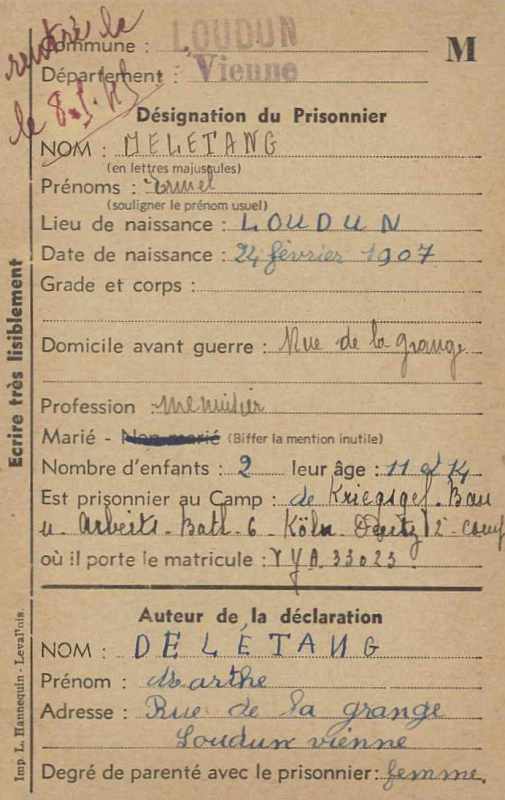 rentré le
le 8.5.45
Commune : LOUDUN
M
Département : Vienne
Désignation du Prisonnier
NOM : DELETANG
(en lettres majuscules)
Prénoms :
(souligner le prénom usuel)
Lieu de naissance : LOUDUN
Date de naissance : 24 février 1907
Grade et corps :
Domicile avant guerre : Rue de la grange
Profession : menuisier
Marié - Non marié (Biffer la mention inutile)
Nombre d'enfants : 2 leur âge : 11 et 14
Est prisonnier au Camp : de Kriegsgef. Bau
u. Arbeits. Batl. 6 Köln Deutz 2
où il porte le matricule : 33023
Auteur de la déclaration
NOM : DELÉTANG
Prénom : Marthe
Adresse : Rue de la grange
Loudun vienne
Degré de parenté avec le prisonnier : femme.
Ecrire très lisiblement
Imp. L. Hannequin - Levallois.